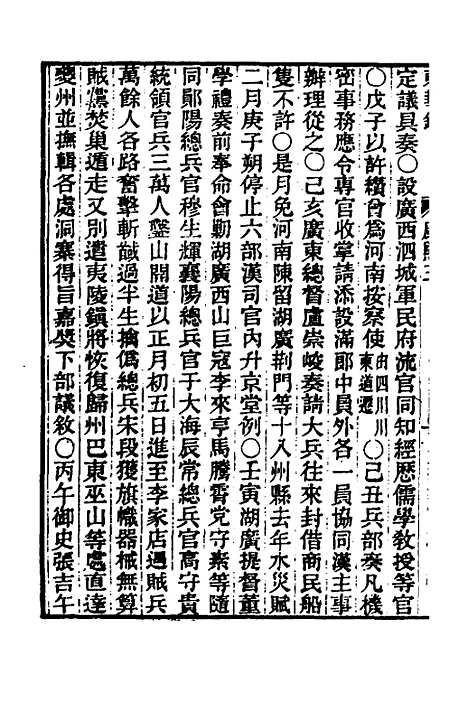 定議具奏〇設廣西泗城軍民府流官同知經歷儒學教授等官
〇戊子以許纘曾爲河南按察使由四川川東道遷〇己丑兵部奏凡機
密事務應令專官收掌請添設滿郎中員外各一員協同漢主事
辦理從之〇己亥廣東總督盧崇峻奏請大兵往來封借商民船
隻不許〇是月免河南陳留湖廣荆門等十八州縣去年水災賦
二月庚子朔停止六部漢司官內升京堂例〇壬寅湖廣提督董
學禮奏前奉命會勦湖廣西山巨寇李來亨馬騰霄党守素等隨
同鄖陽總兵官穆生輝襄陽總兵官于大海辰常總兵官高守貴
統領官兵三萬人鑿山開道以正月初五日進至李家店遇賊兵
萬餘人各路奮擊斬馘過半生擒僞總兵宋段獲旗幟器械無算
賊黨焚巢遁走又別遣夷陵鎮將恢復歸州巴東巫山等處直達
夔州並撫輯各處洞寨得旨嘉奬下部議敘〇丙午御史張吉午